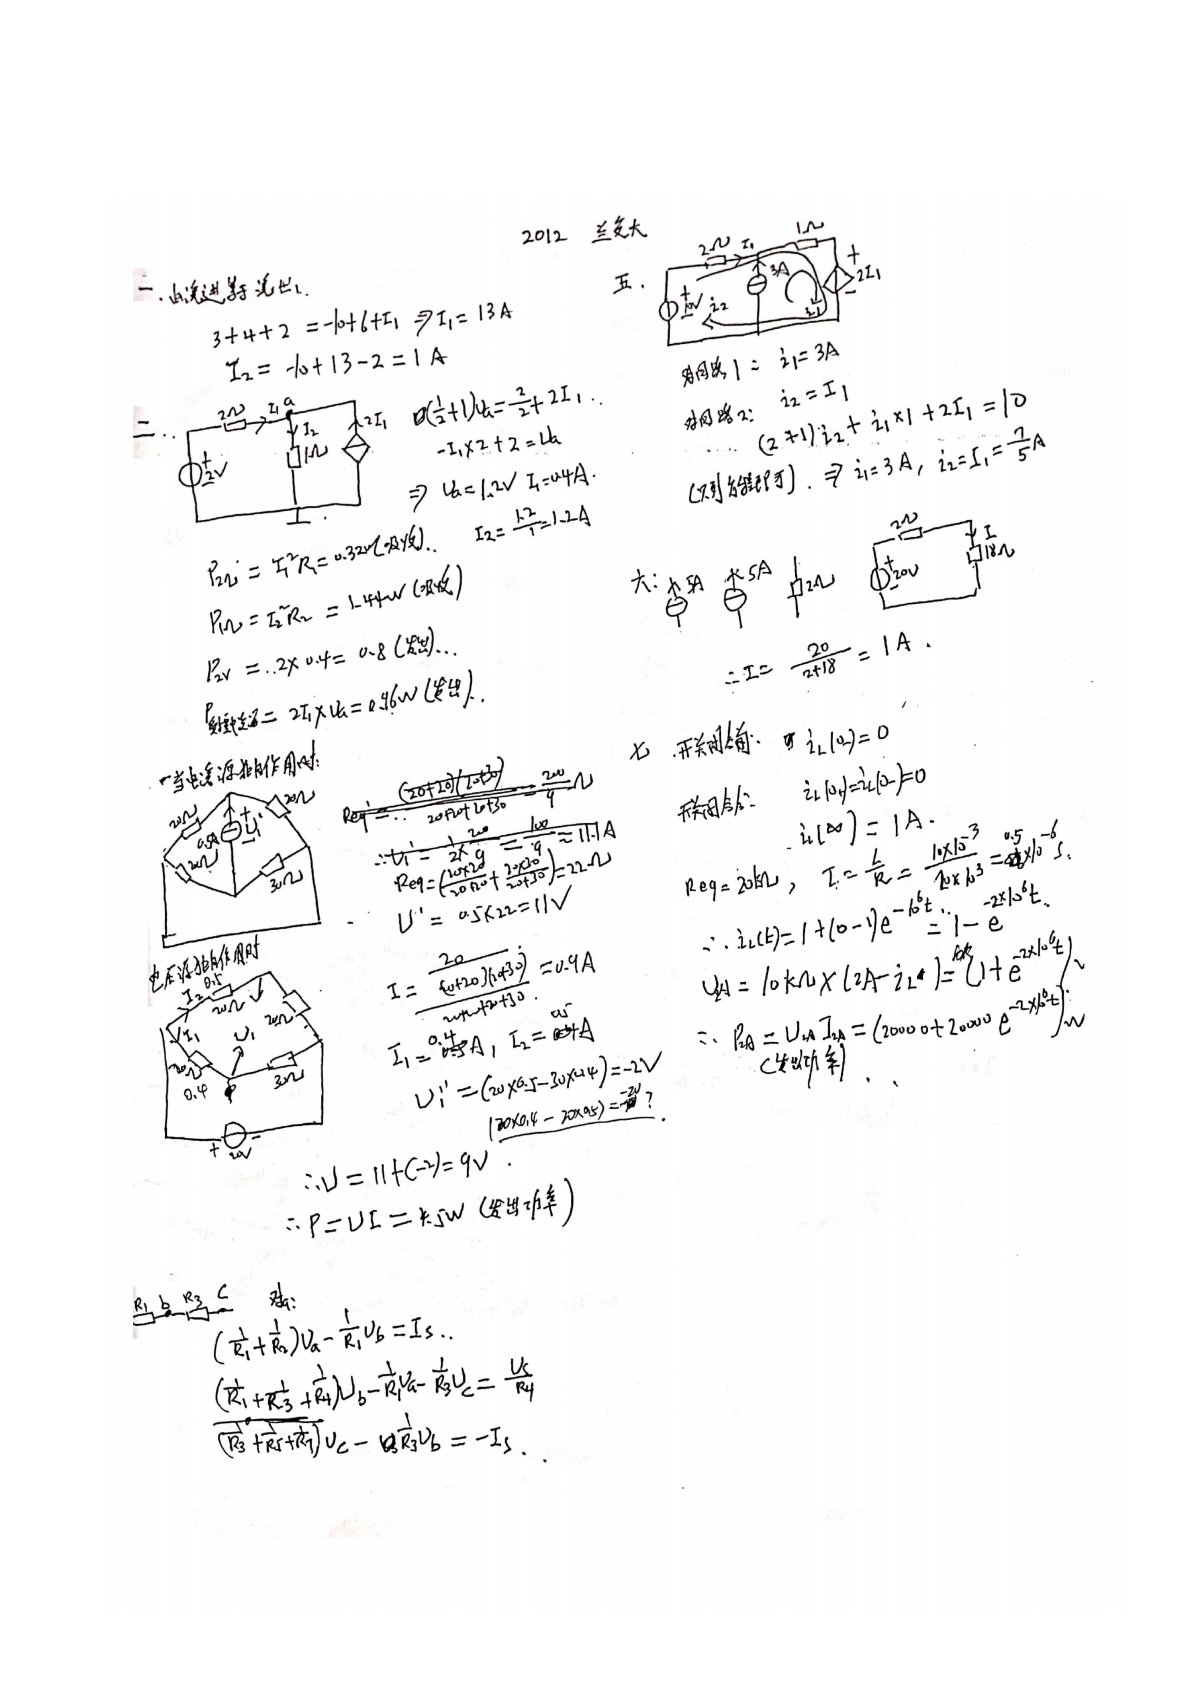 2012 兰交大
一. 由流进等于流出.
3+4+2 = -10+6+I₁ ⇒ I₁ = 13A
I₂ = -10+13-2 = 1A
二..
2Ω I₁ a
I₂
1Ω
2I₁
+ 2V
(1/2+1)Ua = 2/2 + 2I₁..
-I₁×2+2 = Ua
⇒ Ua = 1.2V I₁=0.4A.
I₂ = 1.2/1 = 1.2A
P2Ω = I₁²R₁ = 0.32W(吸收)..
P1Ω = I₂²R₂ = 1.44W(吸收)
P2V = ..2×0.4 = 0.8(发出)...
= 2I₁×Ua = 0.96W(发出)..
当电流源独自作用时:
20Ω 20Ω
0.5A + U₁' -
20Ω 30Ω
Req = (20+20)(20+30)/(20+20+20+30) = 200/9 Ω
∴U₁' = 1/2 × 200/9 = 100/9 = 11.1A
Req = (20×20/(20+20) + 20×30/(20+30)) = 22Ω
U' = 0.5×22 = 11V
电压源独自作用时
I₂ 0.5
20Ω 20Ω
I₁ U₁
20Ω 30Ω
0.4
+ 20V -
I = 20/((20+20)(20+30)/(20+20+30)) = 0.9A
I₁ = 0.4A, I₂ = 0.5A
U₁'' = (20×0.5-30×0.4) = -2V
(20×0.4 - 20×0.5) = -2V ?
∴U = 11+(-2) = 9V.
∴P = UI = 4.5W (发出功率)
R₁ b R₃ c
对a:
(1/R₁+1/R₂)Ua - 1/R₁Ub = Is..
(1/R₁+1/R₃+1/R₄)Ub - 1/R₁Ua - 1/R₃Uc = Us/R₄
(1/R₃+1/R₅+1/R₇)Uc - 1/R₃Ub = -Is.
五.
2Ω I₁ 1Ω
+ 10V - i₂ 3A i₁ + 2I₁ -
对回路1: i₁ = 3A
对回路2: i₂ = I₁
(2+1)i₂ + i₁×1 + 2I₁ = 10
(只列方程即可). ⇒ i₁=3A, i₂=I₁=7/5A
六:
5A 5A 2Ω
2Ω I
+ 20V - 18Ω
∴I = 20/(2+18) = 1A.
七 .开关闭合前: iL(0-)=0
开关闭合后: iL(0+)=iL(0-)=0
iL(∞) = 1A.
Req=20kΩ, τ = L/R = 10×10⁻³/20×10³ = 0.5×10⁻⁶s.
∴iL(t)=1+(0-1)e^-10⁶t.. = 1-e^-2×10⁶t.
= 10kΩ×(2A-iL) = (1+e^-2×10⁶t)V
∴P2A = U2A I2A = (20000+20000e^-2×10⁶t)W
(发出功率)